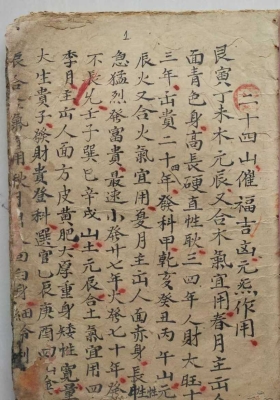 1
二十四山催福吉凶元炁作用
艮寅丁未木元辰又合木氣宜用春月主出人
面青色身高長硬直性耿三四年人財大旺十
三年出貴二十四年發科甲乾亥癸丑丙午山元
辰火又合火氣宜用夏月主出人面赤身長性
急猛烈發富貴最速小發廿七年大發七十年發
不長兑壬子巽巳辛戌山土元辰合土氣宜用四
季月主出人面方皮黄肥大厚重身矮性寬
大生貴子發財貴登科選官乙辰庚酉
辰合